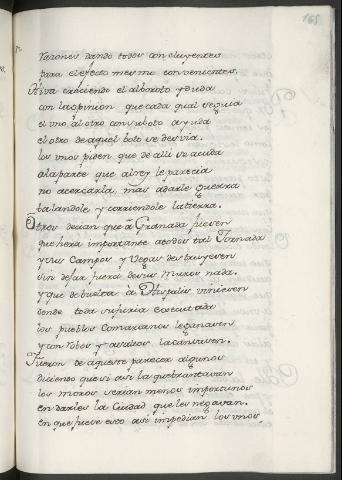 165
Varones dando todos concluyentes
para el efecto mesmo convenientes.
Iva creciendo el alboroto y duda
con la opinion que cada qual seguia
el uno al otro con su boto ayuda
el otro de aquel boto se desvia.
los unos piden que de alli se acuda
a la parte que al rey le parecia
no acercarla, mas darle guerra
talandole y corriendole la tierra.
Otros decian que à Granada fuesen
que hera importante a todos tal Jornada
y sus Campos y Vegas destruyesen
sin dejar fuera de sus Muros nada.
y que de buelta à Hispalis viniesen
donde toda su furia executada
los pueblos Comarcanos le ganasen
y con robos y asaltos la cansasen.
Fueron de aqueste parecer algunos
diciendo que si asi la quebrantavan
los moros serian menos importunos
en darles la Ciudad que les negavan.
en que fuese esto asi impedian los unos